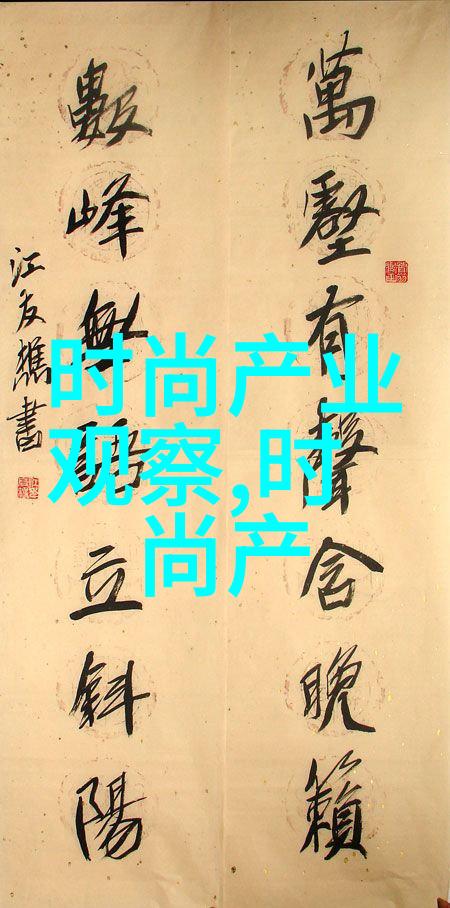 时尚产业
观察,时
尚产
萬壑有聲含晚籟
數峰無語立斜陽
江友樵書